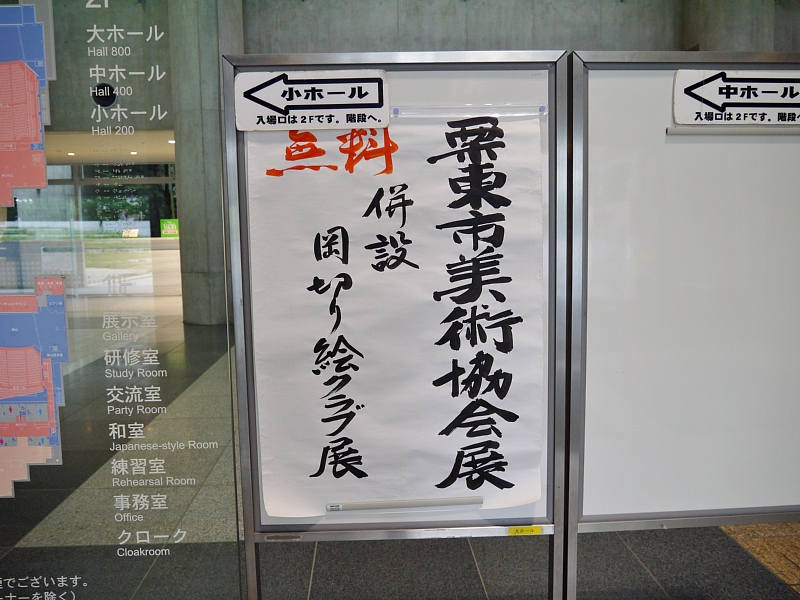 2F
大ホール
Hall 800
中ホール
Hall 400
小ホール
Hall 200
展示室
Gallery
研修室
Study Room
交流室
Party Room
和室
Japanese-style Room
練習室
Rehearsal Room
事務室
Office
クローク
Cloakroom
でございます。
ーナーを除く)
小ホール
入場口は2Fです。階段へ。
栗東市美術協会展
無料
併設
岡切り絵クラブ展
大ホール
中ホール
入場口は2Fです。階段へ